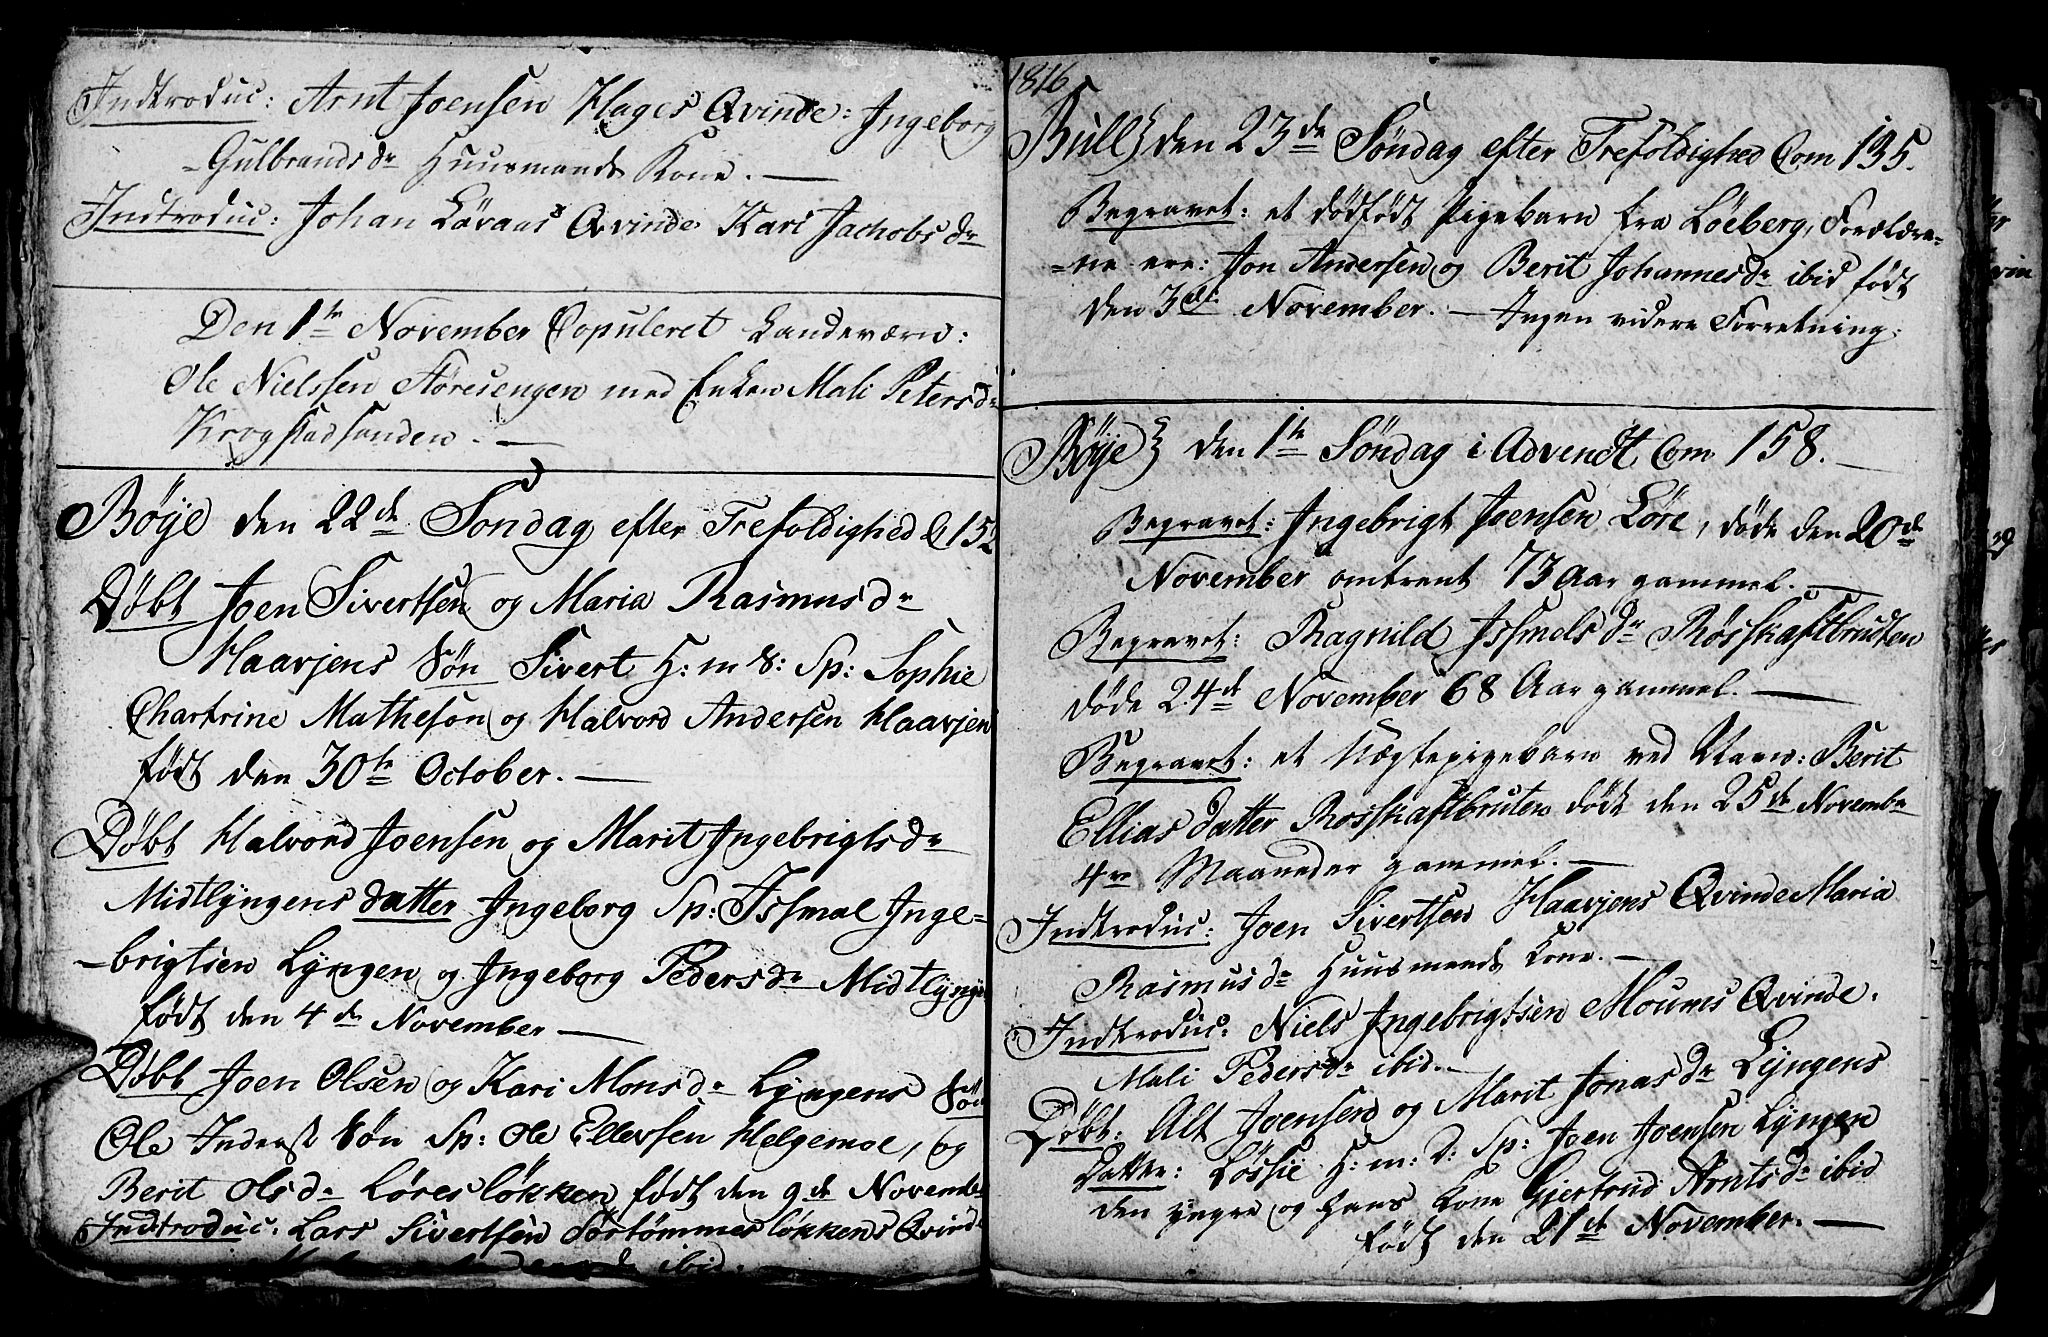 Indtroduc: Arnt Joensen Hages Qvinde: Ingeborg
-Gulbrandsdr Huusmands Kone. —
Indtroduc: Johan Løraas Qvinde Kari Jachobsdr
Den 1te November Copuleret Landeværn:
Ole Nielssen Støresengen med Enken Mali Petersdr
Krogstadsanden. —
Bøye den 22de Søndag efter Trefoldighed C 152
Døbt Joen Sivertsen og Maria Rasmusdr
Haavjens Søn Sivert H: m S: Sp: Sophie
Chartrine Matheson og Halvord Andersen Haavjen
født den 30te October. —
Døbt Halvord Joensen og Marit Ingebrigtsdr
Midtlyngens datter Ingeborg Sp: Issmal Inge=
-brigtsen Lyngen og Ingeborg Pedersdr Midtlyngen
født den 4de November —
Døbt Joen Olsen og Kari Monsdr Lyngens Søn
Ole Inderst Søn Sp: Ole Ellevsen Helgemoe, og
Berit Olsdr Løresløkken født den 9de Novembr
Indtroduc: Lars Sivertsen Sørtømmesløkkens Qvinde
ibid. —
1816
Büll} den 23de Søndag efter Trefoldighed Com 135.
Begravet: et dødfødt Pigebarn fra Løeberg, Forældre=
=ne ere: Jon Andersen og Berit Johannesdr ibid født
den 3de November. — Ingen videre Forretning.
Bøye} den 1te Søndag i Advendt Com 158. —
Begravet: Ingebrigt Joensen Løre, døde den 20de
November omtrent 73 Aar gammel. —
Begravet: Ragnild Issmelsdr Røsskaftbrudten
døde 24de November 68 Aar gammel. —
Begravet: et Uægtepigebarn ved Navn: Berit
Ellias datter Rosskaftbruten død den 25de Novembr
4re Maaneder gammel. —
Indtroduc: Joen Sivertsen Haavjens Qvinde Maria
Rasmusdr Huusmands Kone. —
Indtroduc: Niels Ingebrigtsen Moums Qvinde.
Mali Pedersdr ibid. —
Døbt: Alt Joensen og Marit Jonasdr Lyngens
Datter: Løssie H: m: D: Sp: Joen Joensen Lyngen
den yngre og Hans Kone Gjertrud Arntsdr ibid
født den 21de November. —